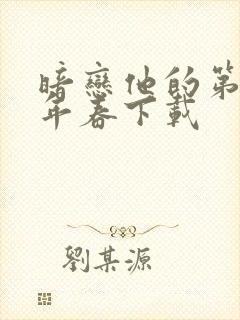 暗戀他的第
年春下載
劉某源